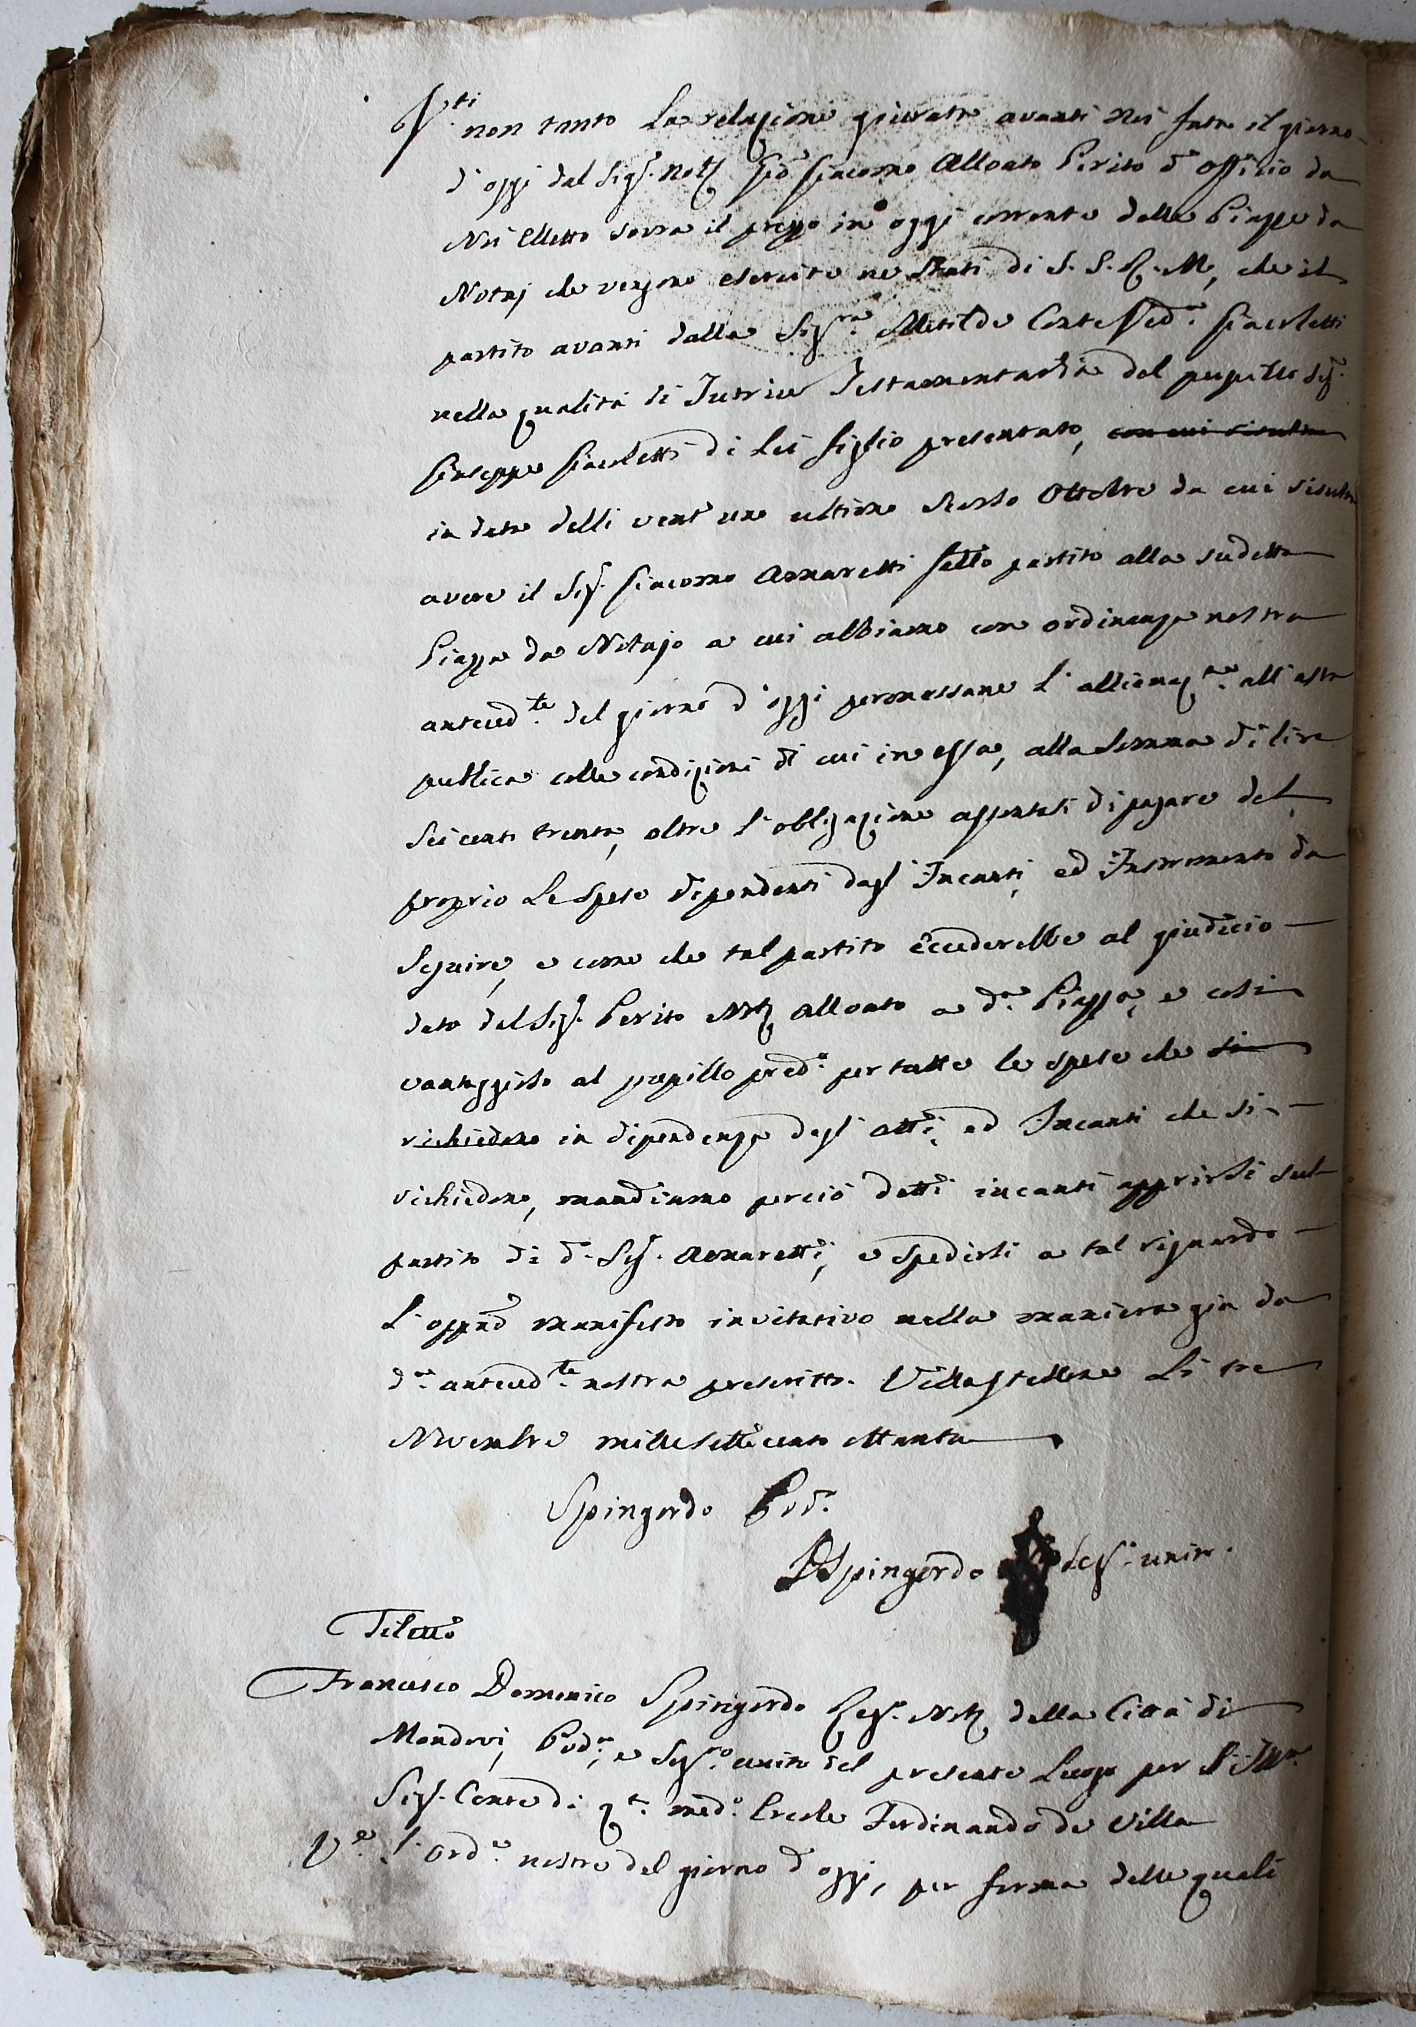 V.ti non tanto La relazione giurata avanti Noi fatta il giorno
d'oggi dal Sig.r Not.o Gio Giacomo Alloato Perito d'officio da
Noi Eletto sovra il prezzo in oggi corrente delle Piazze da
Notaj che vengono esercite ne Stati di S. S. R. M., che il
partito avanti dalla Sig.ra Metilde Conte Ved.a Giacoletti
nella qualità di Tutrice Testamentaria del pupillo Sig.r
Giuseppe Giacoletti di Lei figlio presentato, con cui risulta
in data delli vent'uno ultimo scorso Ottobre da cui risulta
avere il Sig.r Giacomo Asmaretti fatto partito alla sudetta
Piazza da Notajo a cui abbiamo con ordinanza nostra
anteced.te del giorno d'oggi permessane l'alienaz.ne all'asta
publica colle condizioni di cui in essa, alla somma di lire
Seicento trenta, oltre l'obligazione assontasi di pagare del
proprio Le Spese dipendenti dagl'Incanti, ed Instromento da
Seguire, e come che tal partito eccederebbe al giudicio
dato del Sig.r Perito Not.o Alloato a d.a Piazza, e così
vantaggioso al pupillo pred.o per tutte le spese che si
richiedono in dipendenza degl'atti, ed Incanti che si
richiedono, mandiamo perciò detti incanti apprirsi sul
partito di d.o Sig.r Asmaretti, e spedirsi a tal riguardo
L'opp.no manifesto invitativo nella maniera già da
d.a anteced.te nostra prescritto. Villastellone Li tre
Novembre mille settecento ottanta
Spingardo Pod.a
Spingardo Seg.o unito.
Tiletto
Francesco Domenico Spingardo Reg.o Not.o della Città di
Mondovi, Pod.a, e Seg.ro unito del presente Luogo per l'Ill.mo
Sig.r Conte di q.to med.o Ercole Ferdinando de Villa
V.a l'ord.a nostra del giorno d'oggi, per forma delle quali